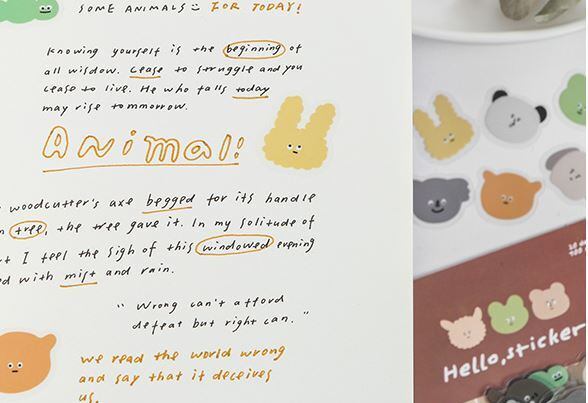 SOME ANIMALS FOR TODAY!
Knowing yourself is the beginning of
all wisdom. Cease to struggle and you
cease to live. He who falls today
may rise tommorrow.
Animal!
woodcutter's axe begged for its handle
tree, the tree gave it. In my solitude of
I feel the sigh of this windowed evening
with mist and rain.
"Wrong can't afford
defeat but right can."
we read the world wrong
and say that it deceives
us.
Hello, sticker